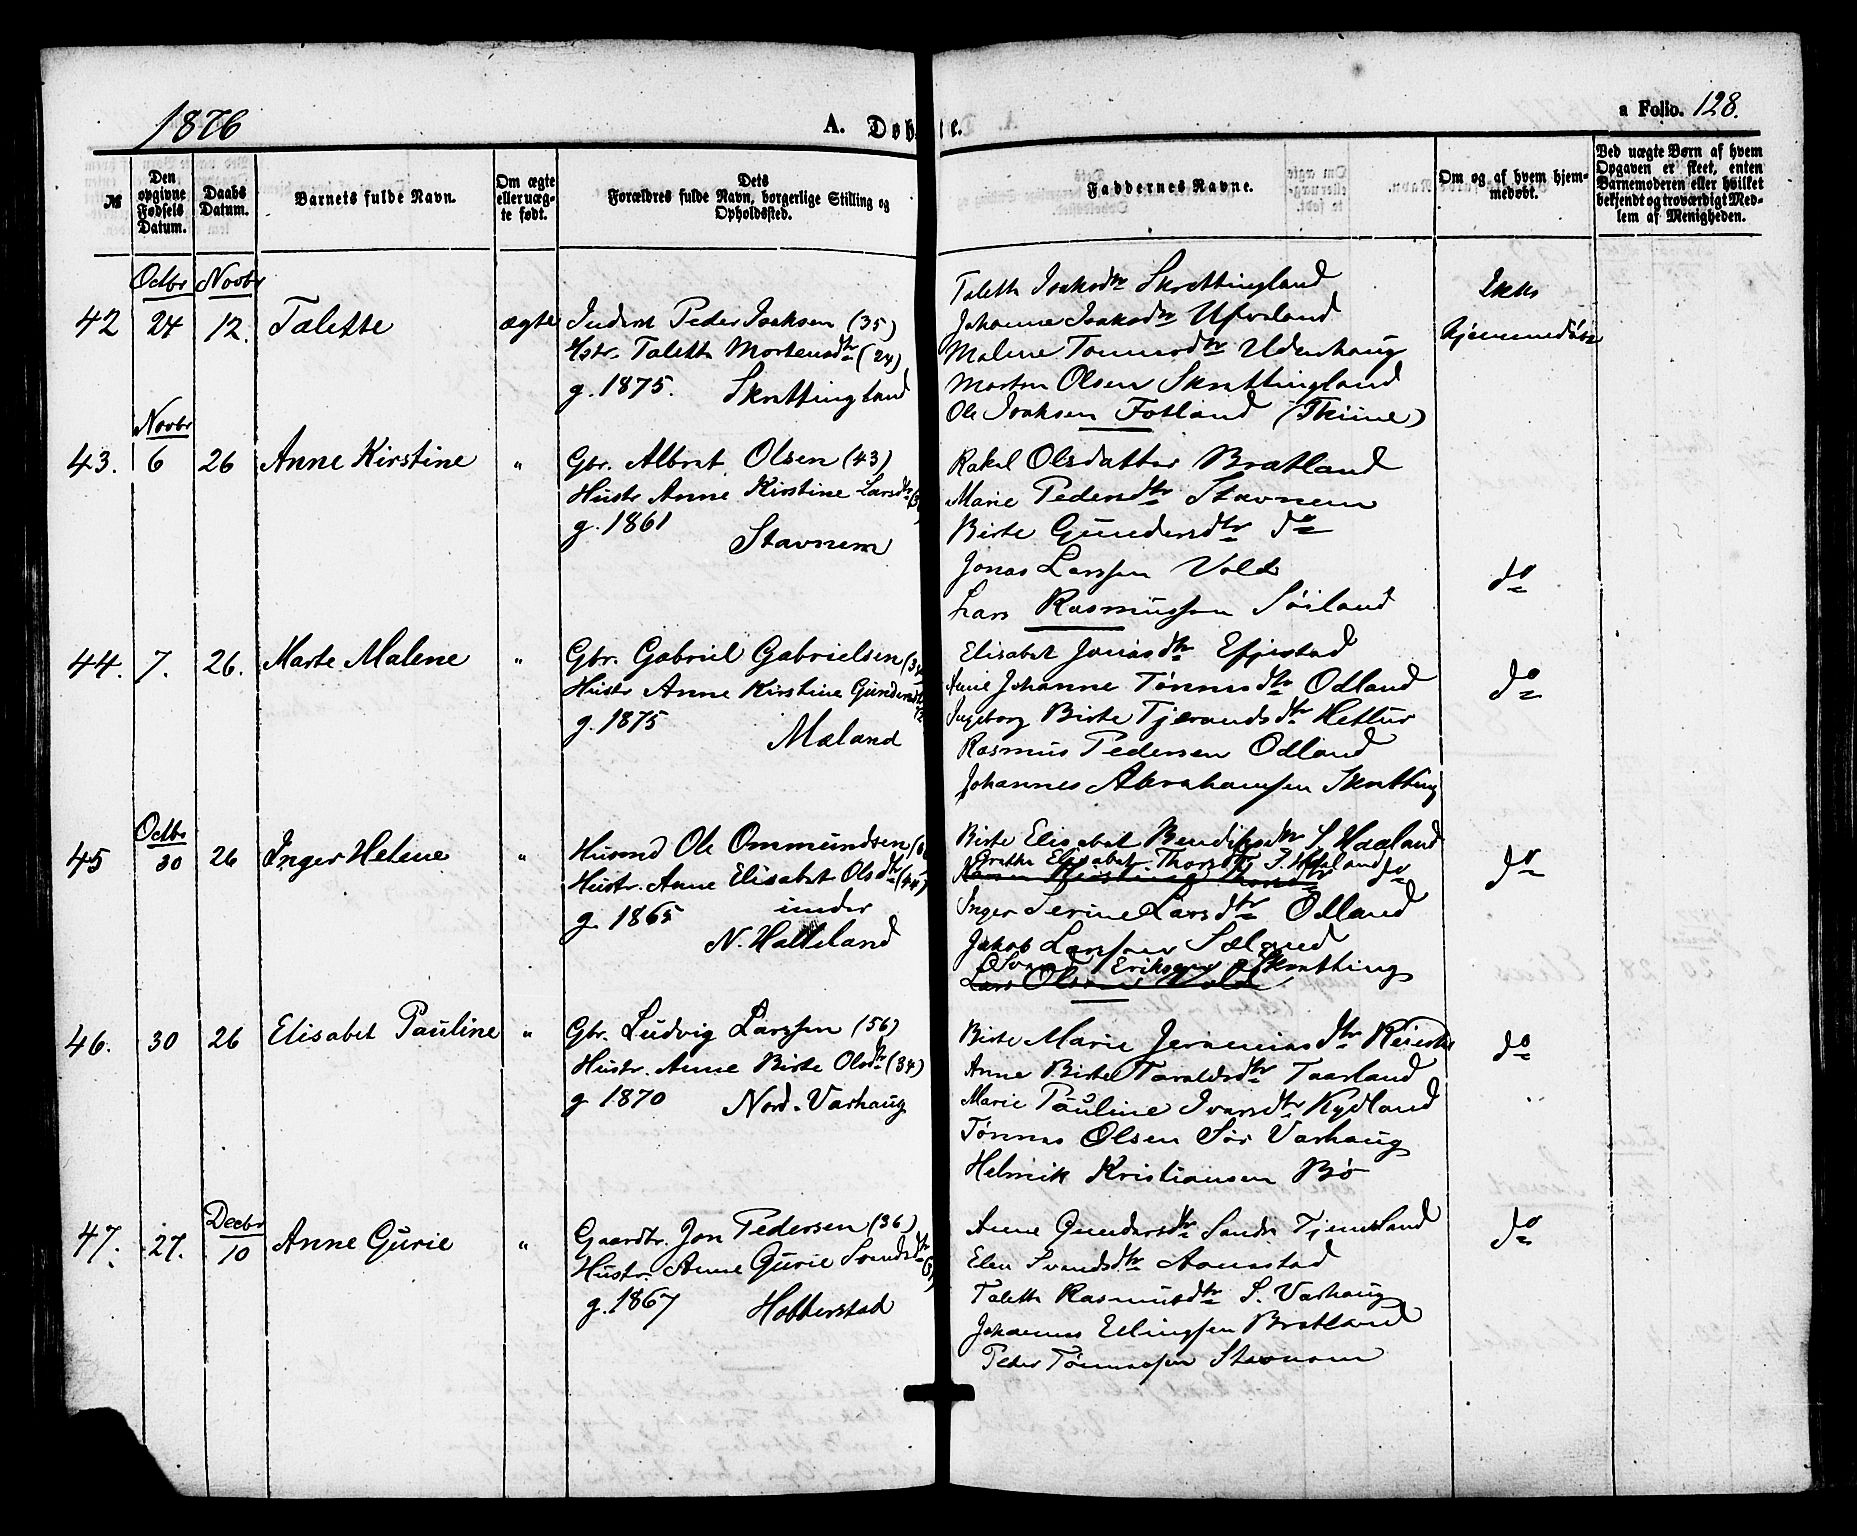 1876
A. Døb
te.
a Folio. 128.
№
Den opgivne Fødsels Datum.
Daabs Datum.
Barnets fulde Navn.
Om ægte eller uægte født.
Dets Forældres fulde Navn, borgerlige Stilling og Opholdssted.
Faddernes Navne.
Om og af hvem hjemmedøbt.
Ved uægte Børn af hvem Opgaven er skeet, enten Barnemoderen eller hvilket bekjendt og troværdigt Medlem af Menigheden.
Octbr Novbr
42 24 12. Talette ægte Inderst Peder Isaksen (35)
Hstr. Talette Mortensdtr (24)
g. 1875. Skrettingland
Talette Isaksdtr Skrettingland
Johanne Isaksdtr
Malene Tønnesdtr Udenhaug
Morten Olsen Skrettingland
Ole Isaksen Fotland (Thime)
Ikke
hjemmedøbt
Novbr
43. 6 26 Anne Kirstine " Gbr. Albret Olsen (43)
Hustr Anne Kirstine Larsdtr
g. 1861 Stavnem
Rakel Olsdatter Bratland
Marie Pedersdtr Stavnem
Birte Gundersdtr do
Jonas Larssen Vold
Lars Rasmussen Søiland
do
44. 7. 26. Marte Malene " Gbr. Gabriel Gabrielsen
Hustr Anne Kirstine Gundersdtr
g. 1875 Mæland
Elisabet Jonasdtr Efjestad
Anne Johanne Tønnesdtr Odland
Ingeborg Birte Tjerandsdtr Hetlur
Rasmus Pedersen Odland
Johannes Abrahamsen Skretting
do
Octbr
45 30 26 Inger Helene " Husmd Ole Ommundsen
Hustr. Anne Elisabet Olsdtr (44)
g. 1865 under
N. Hatteland
Birte Elisabet Bendiksdtr S. Haaland
Grethe Elisabet Thorsdtr S. Haaland do
Inger Serine Larsdtr Odland
Jakob Larssen Sæland
Svend Eriksen Skretting
Lars Olsen Vold
do
46. 30 26 Elisabet Pauline " Gbr. Ludvig Larssen (56)
Hustr. Anne Birte Olsdtr (34)
g 1870 Nord-Varhaug
Birte Marie Jeremiasdtr
Anne Birte Taraldsdtr Taarland
Marie Pauline Ivarsdtr Rydland
Tønnes Olsen Sør Varhaug
Helmik Kristiansen Bø
do
Decbr
47. 27. 10 Anne Gurie " Gaardbr. Jon Pedersen (36)
Hustr. Anne Gurie Svendsdtr
g. 1867 Hobberstad
Anne Gundersdtr Sandr Tjemsland
Elen Svendsdtr Aanestad
Talette Rasmusdtr S. Varhaug
Johannes Ellingsen Bratland
Peder Tønnessen Stavnem
do